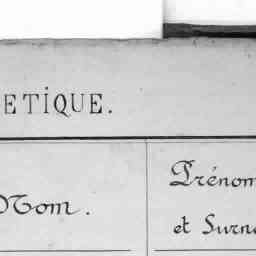 ETIQUE.
Nom.
Prénom
et Surno